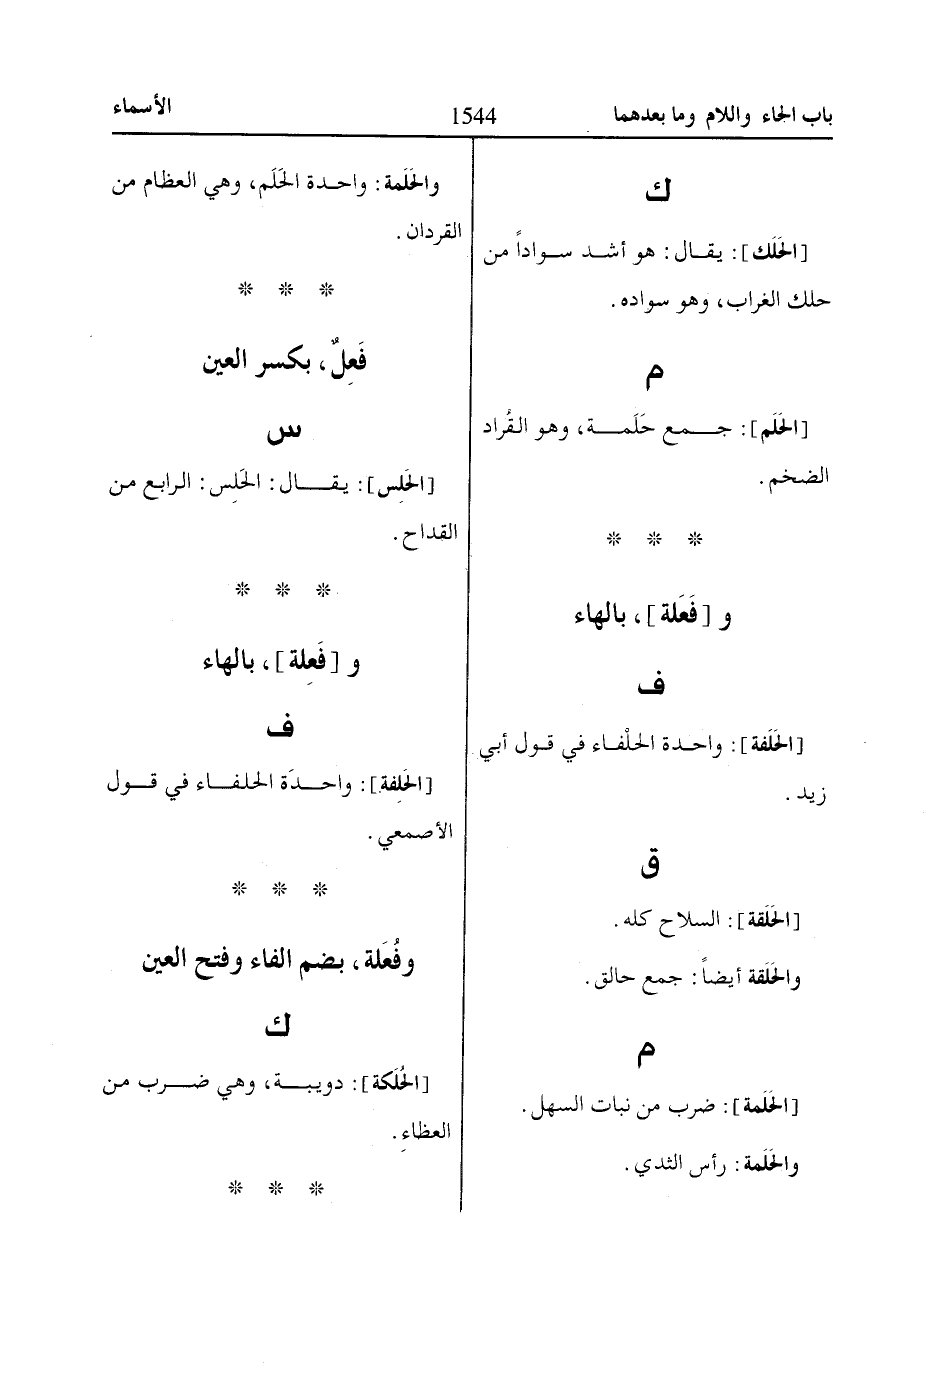 باب الحاء واللام وما بعدهما
1544
الأسماء
ك
[الحَلَك]: يقال: هو أشد سواداً من
حلك الغراب، وهو سواده.
م
[الحَلَم]: جمع حَلَمة، وهو القُراد
الضخم.
* * *
و [فَعَلة]، بالهاء
ف
[الحَلَفة]: واحدة الحلْفاء في قول أبي
زيد.
ق
[الحَلَقة]: السلاح كله.
والحَلَقة أيضاً: جمع حالق.
م
[الحَلَمة]: ضرب من نبات السهل.
والحَلَمة: رأس الثدي.
والحَلَمة: واحدة الحَلَم، وهي العظام من
القردان.
* * *
فَعِلٌ، بكسر العين
س
[الحَلِس]: يقال: الحَلِس: الرابع من
القداح.
* * *
و [فَعِلة]، بالهاء
ف
[الحَلِفة]: واحدَة الحلفاء في قول
الأصمعي.
* * *
وفُعَلة، بضم الفاء وفتح العين
ك
[الحُلَكة]: دويبة، وهي ضرب من
العظاءِ.
* * *